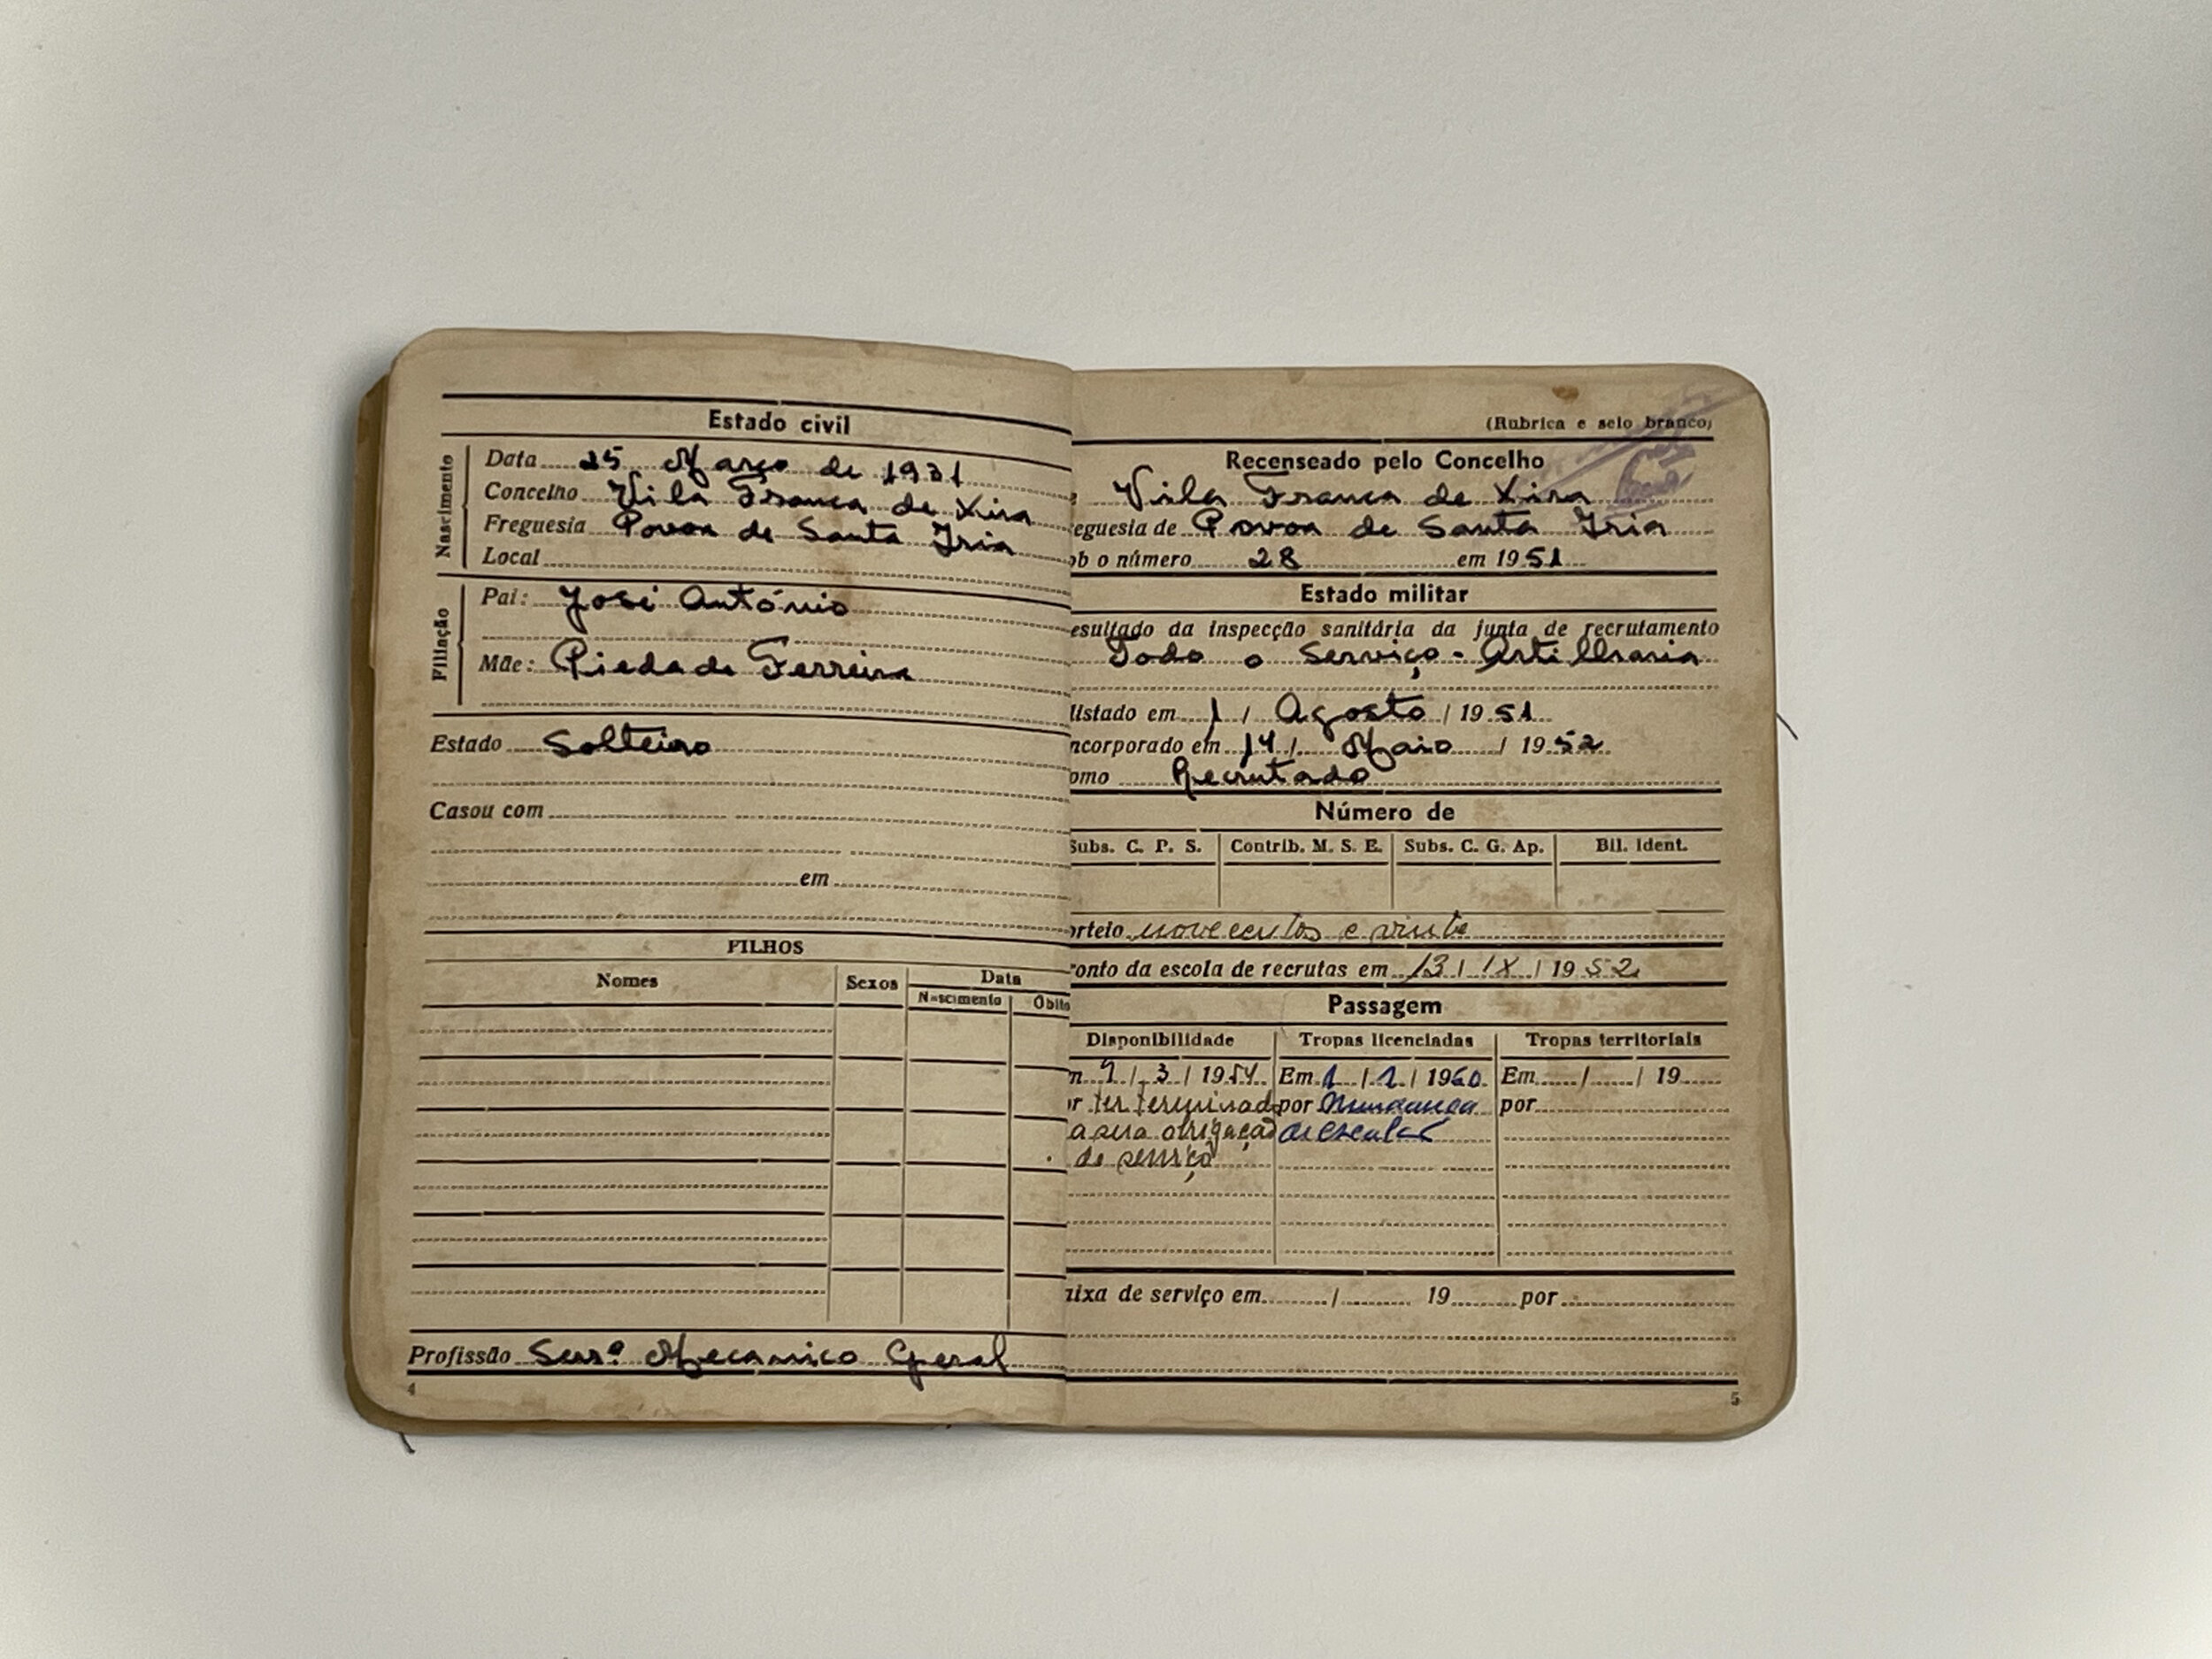 Estado civil
Nascimento
Data 25 Março de 1931
Concelho Vila Franca de Xira
Freguesia Povoa de Santa Iria
Local
Filiação
Pai: José António
Mãe: Piedade Ferreira
Estado Solteiro
Casou com
em
FILHOS
Nomes Sexos Data
Nascimento Óbito
Profissão Serrº Mecanico Geral
4
(Rubrica e selo branco)
Recenseado pelo Concelho
Vila Franca de Xira
eguesia de Povoa de Santa Iria
ob o número 28 em 1951
Estado militar
esultado da inspecção sanitária da junta de recrutamento
Todo o Serviço - Artilharia
listado em 1 / Agosto / 1951
ncorporado em 14 / Maio / 1952
omo Recrutado
Número de
Subs. C. P. S. Contrib. M. S. E. Subs. C. G. Ap. Bil. Ident.
orteio novecentos e vinte
ronto da escola de recrutas em 13 / IX / 1952
Passagem
Disponibilidade Tropas licenciadas Tropas territoriais
m 9 / 3 / 1954 Em 1 / 1 / 1960 Em / / 19
r ter terminado por mudança por
a sua obrigação de escalão
de serviço
aixa de serviço em / 19 por
5